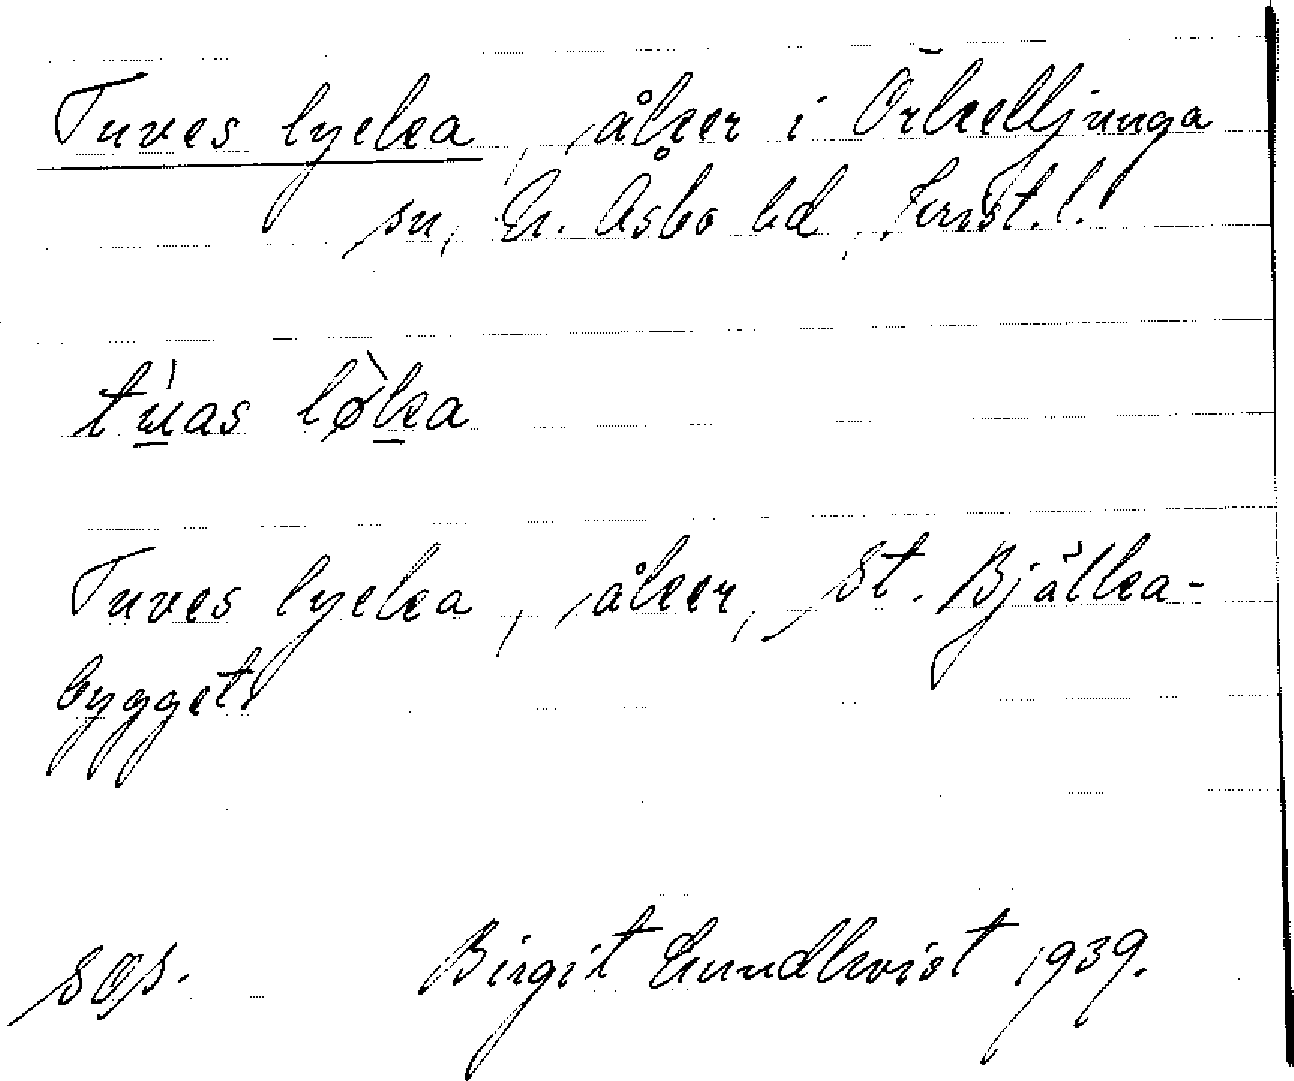 Tuves lycka, åker i Örkelljunga
sn, N. Åsbo hd, Krist. l.
tùas lø̀ka
Tuves lycka, åker, St. Bjälka-
bygget.
sgs. Birgit Lundkvist 1939.